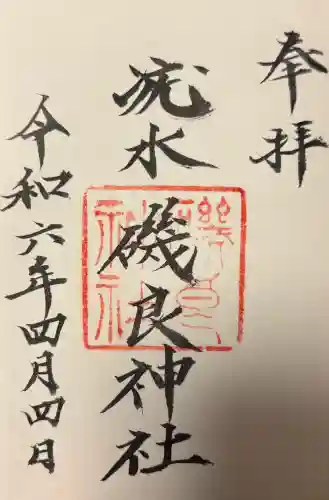 奉拝
疣水
磯良神社
令和六年四月四日